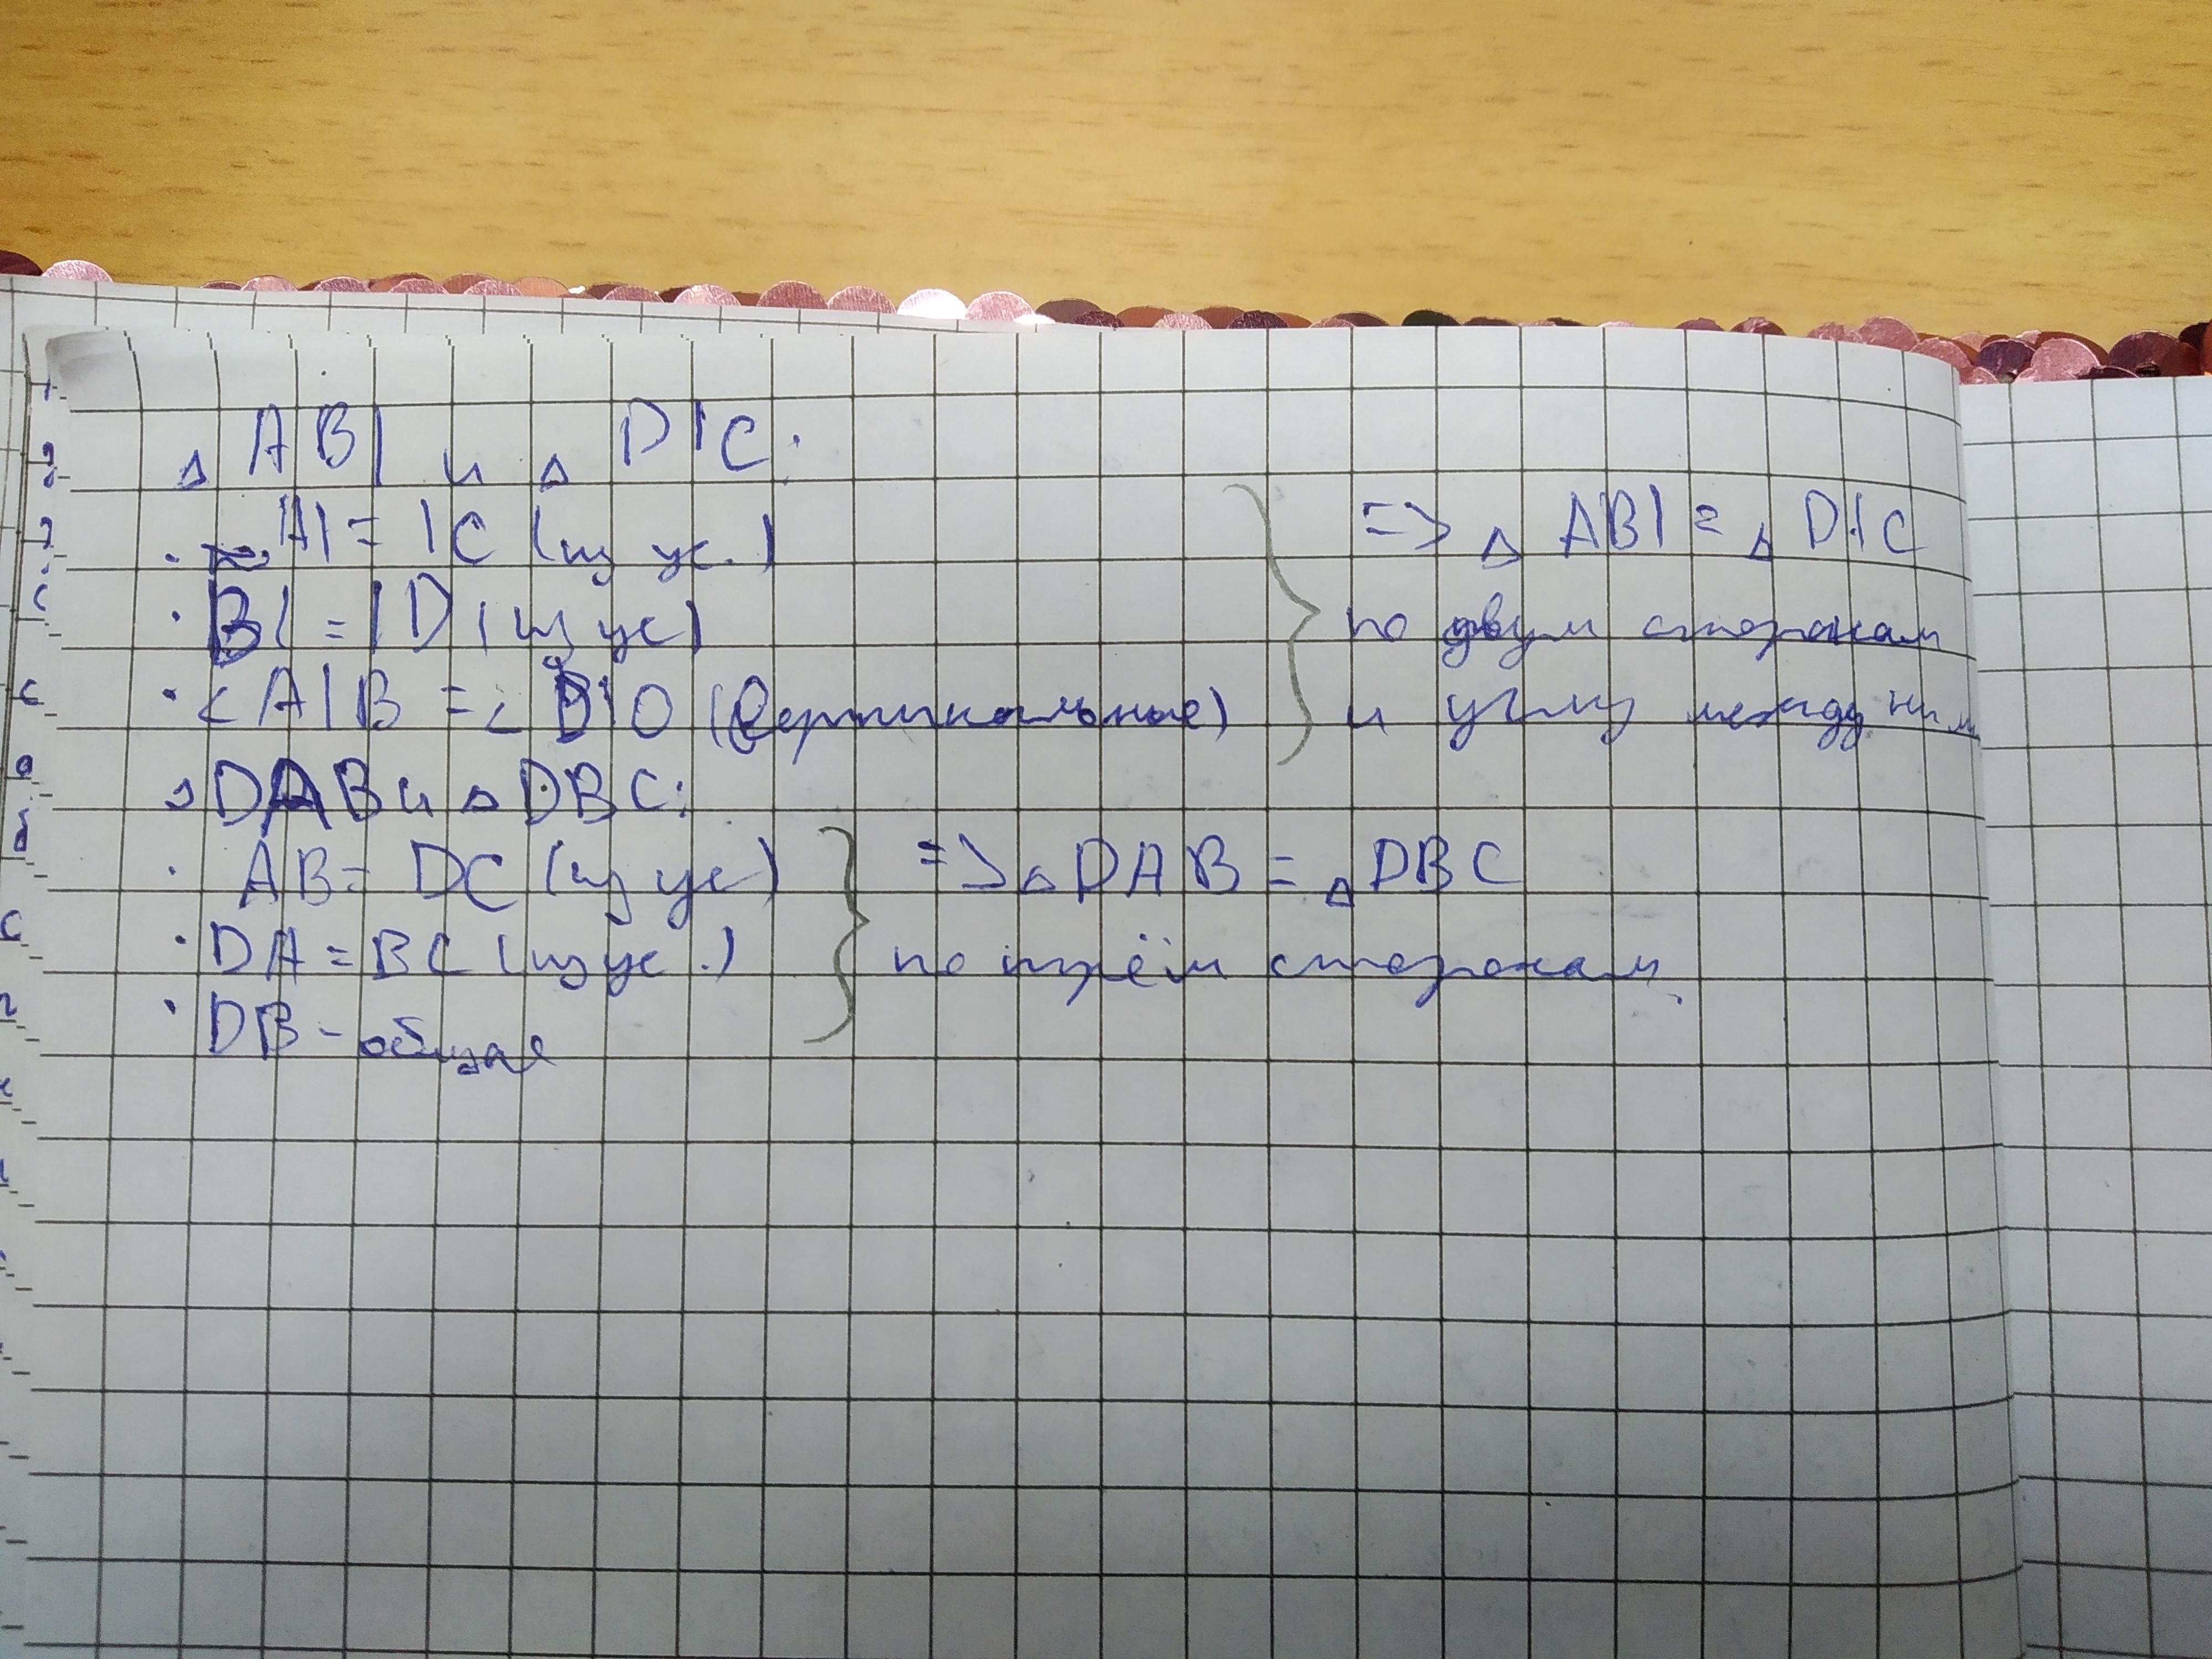 △ ABI и △ DIC:
· AI = IC (из ус.)
· BI = ID (из ус)
· <AIB = <DIO (вертикальные)
=> △ ABI = △ DIC
по двум сторонам
и углу между ними
△DAB и △DBC:
· AB = DC (из ус)
· DA = BC (из ус.)
· DB - общая
=> △DAB = △DBC
по трём сторонам.